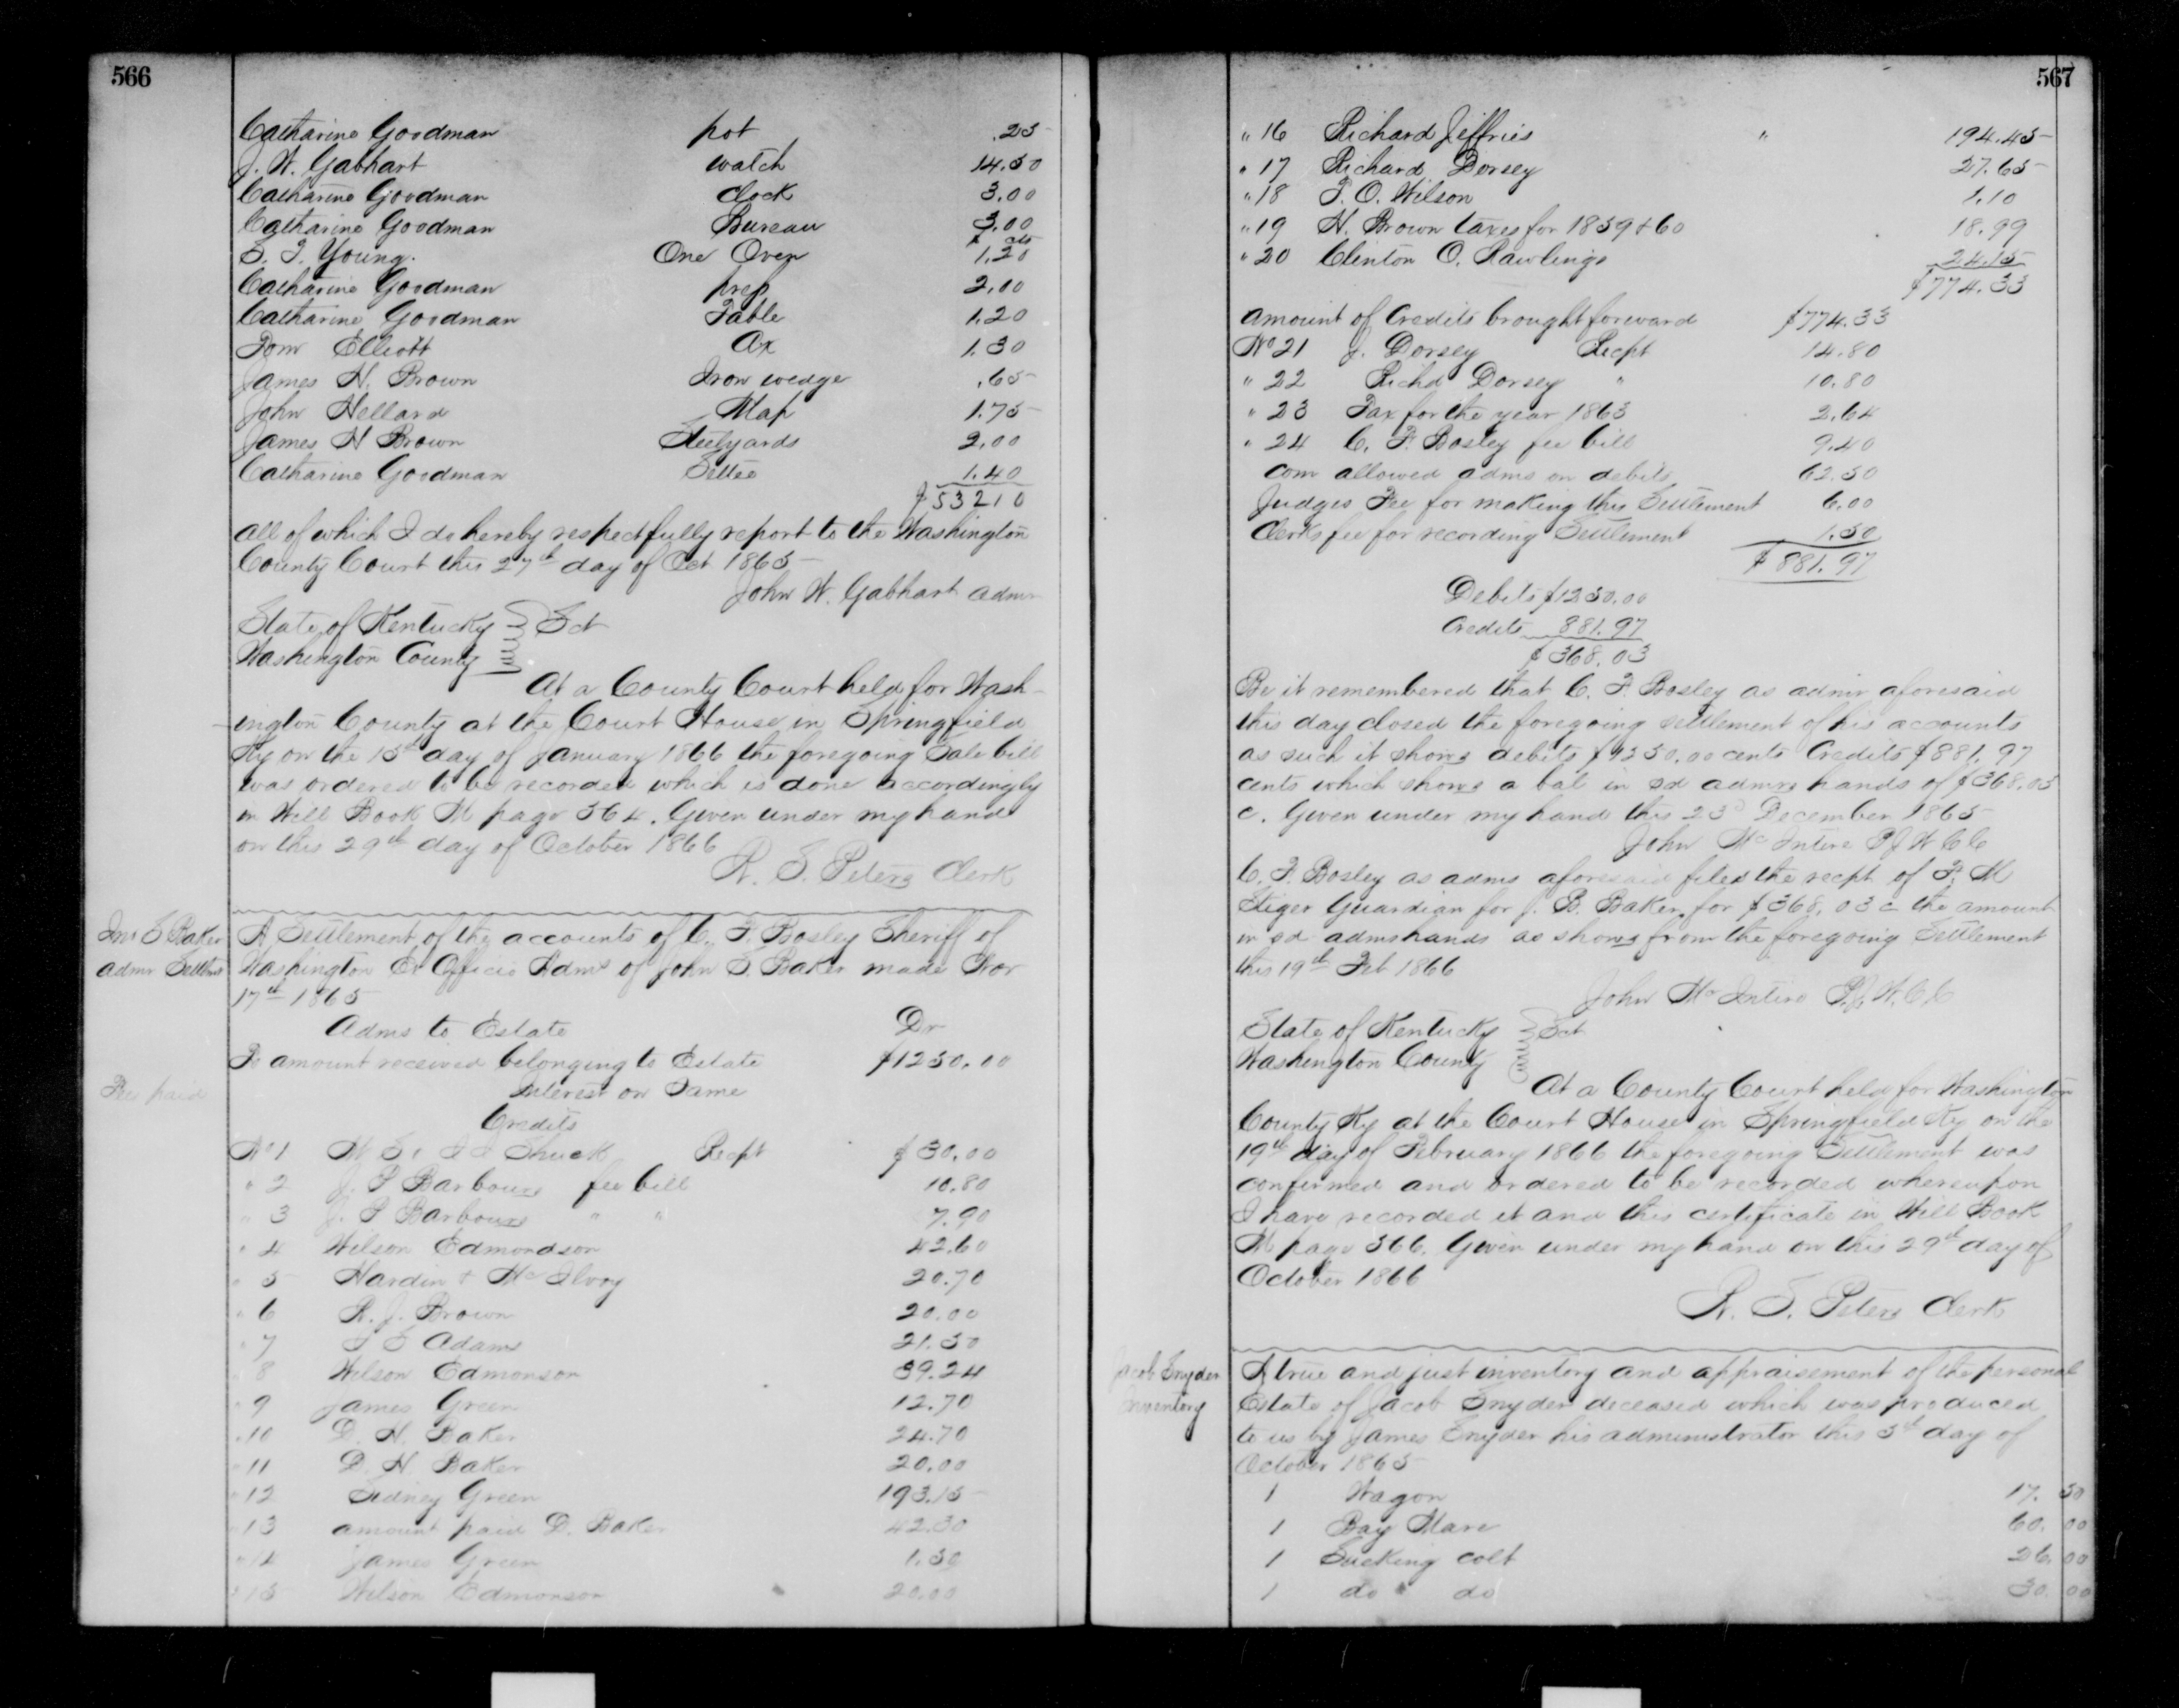 566
Catharine Goodman pot .25
J. W. Gabhart watch 14.50
Catharine Goodman Clock 3.00
Catharine Goodman Bureau 3.00
$ cts
S. T. Young. One Oven 1.20
Catharine Goodman press 2.00
Catharine Goodman Table 1.20
Tom Elliott Ax 1.30
James H. Brown Iron wedge .65
John Hellard Map 1.75
James H Brown Steelyards 2.00
Catharine Goodman Settee 1.40
$53210
all of which I do hereby respectfully report to the Washington
County Court this 27th day of Oct 1865
John W. Gabhart admr
State of Kentucky Sct
Washington County
At a County Court held for Wash-
ington County at the Court House in Springfield
Ky on the 15th day of January 1866 the foregoing Sale bill
was ordered to be recorded which is done accordingly
in Will Book M page 564. Given under my hand
on this 29th day of October 1866
R. S. Peters Clerk
Jno S Baker
admr Settlmt
A Settlement of the accounts of C. F. Bosley Sheriff of
Washington Ex Officio Adms of John S. Baker made Nov
17th 1865
Adms to Estate Dr
To amount received belonging to Estate $1250.00
Fee paid
Interest on Same
Credits
No 1 Shuck Recpt $30.00
" 2 J. P Barbour fee bill 10.80
" 3 J. P Barbour " " 7.90
" 4 Wilson Edmondson 42.60
" 5 Hardin & McIlvoy 20.70
" 6 R. J. Brown 20.00
" 7 Adams 21.50
" 8 Wilson Edmonson 39.24
" 9 James Green 12.70
" 10 D. H. Baker 24.70
" 11 D. H. Baker 20.00
" 12 Sidney Green 193.15
" 13 amount paid D. Baker 42.30
" 14 James Green 1.50
" 15 Wilson Edmonson 20.00
567
" 16 Richard Jeffries " 194.45
" 17 Richard Dorsey 27.65
" 18 T. O. Wilson 1.10
" 19 H. Brown taxes for 1859 & 60 18.99
" 20 Clinton O. Rawlings 24.15
$774.33
amount of Credits brought forward $774.33
No 21 J. Dorsey Recpt 14.80
" 22 Richd Dorsey " 10.80
" 23 Tax for the year 1863 2.64
" 24 C. F. Bosley fee bill 9.40
Com allowed adms on debits 62.50
Judges Fee for making this Settlement 6.00
Clerks fee for recording Settlement 1.50
$881.97
Debits $1250.00
Credits 881.97
$368.03
Be it remembered that C. F. Bosley as admr aforesaid
this day closed the foregoing settlement of his accounts
as such it shows debits $1250.00 cents Credits $881.97
cents which shows a bal in sd admrs hands of $368.03
c. Given under my hand this 23d December 1865
John McIntire PJWCC
C. F. Bosley as adms aforesaid filed the recpt of F. M
Stiger Guardian for J. B. Baker for $368,03c the amount
in sd adms hands as shows from the foregoing Settlement
this 19th Feb 1866
John McIntire P.J.W.C.C
State of Kentucky Sct
Washington County
At a County Court held for Washington
County Ky at the Court House in Springfield Ky on the
19th day of February 1866 the foregoing Settlement was
confirmed and ordered to be recorded whereupon
I have recorded it and this certificate in Will Book
M page 566. Given under my hand on this 29th day of
October 1866
R. S. Peters Clerk
Jacob Snyder
Inventory
A true and just inventory and appraisement of the personal
Estate of Jacob Snyder deceased which was produced
to us by James Snyder his administrator this 5th day of
October 1865
1 Wagon 17. 50
1 Bay Mare 60. 00
1 Sucking colt 26. 00
1 do do 30. 00